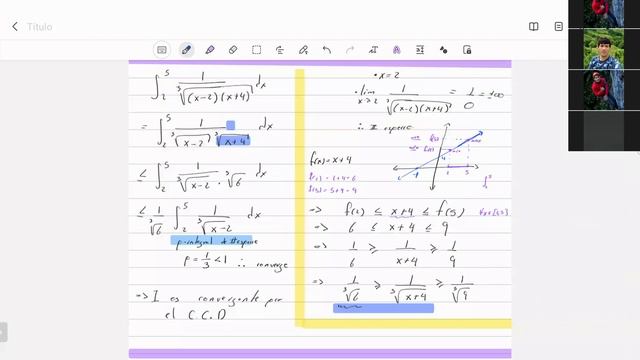 Título
∫₂⁵ 1/∛((x-2)(x+4)) dx
= ∫₂⁵ 1/(∛(x-2) ∛(x+4)) dx
≤ ∫₂⁵ 1/(∛(x-2) · ∛6) dx
≤ 1/∛6 ∫₂⁵ 1/∛(x-2) dx
p-integral 2ª especie
p = 1/3 < 1 ∴ converge
=> I es convergente por
el C.C.D
• x = 2
• lim x→2 1/∛((x-2)(x+4)) = 1/0 = ±∞
f(x) = x+4
f(2) = 2+4 = 6
f(5) = 5+4 = 9
=> f(2) ≤ x+4 ≤ f(5) ∀x∈[2,5]
=> 6 ≤ x+4 ≤ 9
=> 1/6 ≥ 1/(x+4) ≥ 1/9
=> 1/∛6 ≥ 1/∛(x+4) ≥ 1/∛9